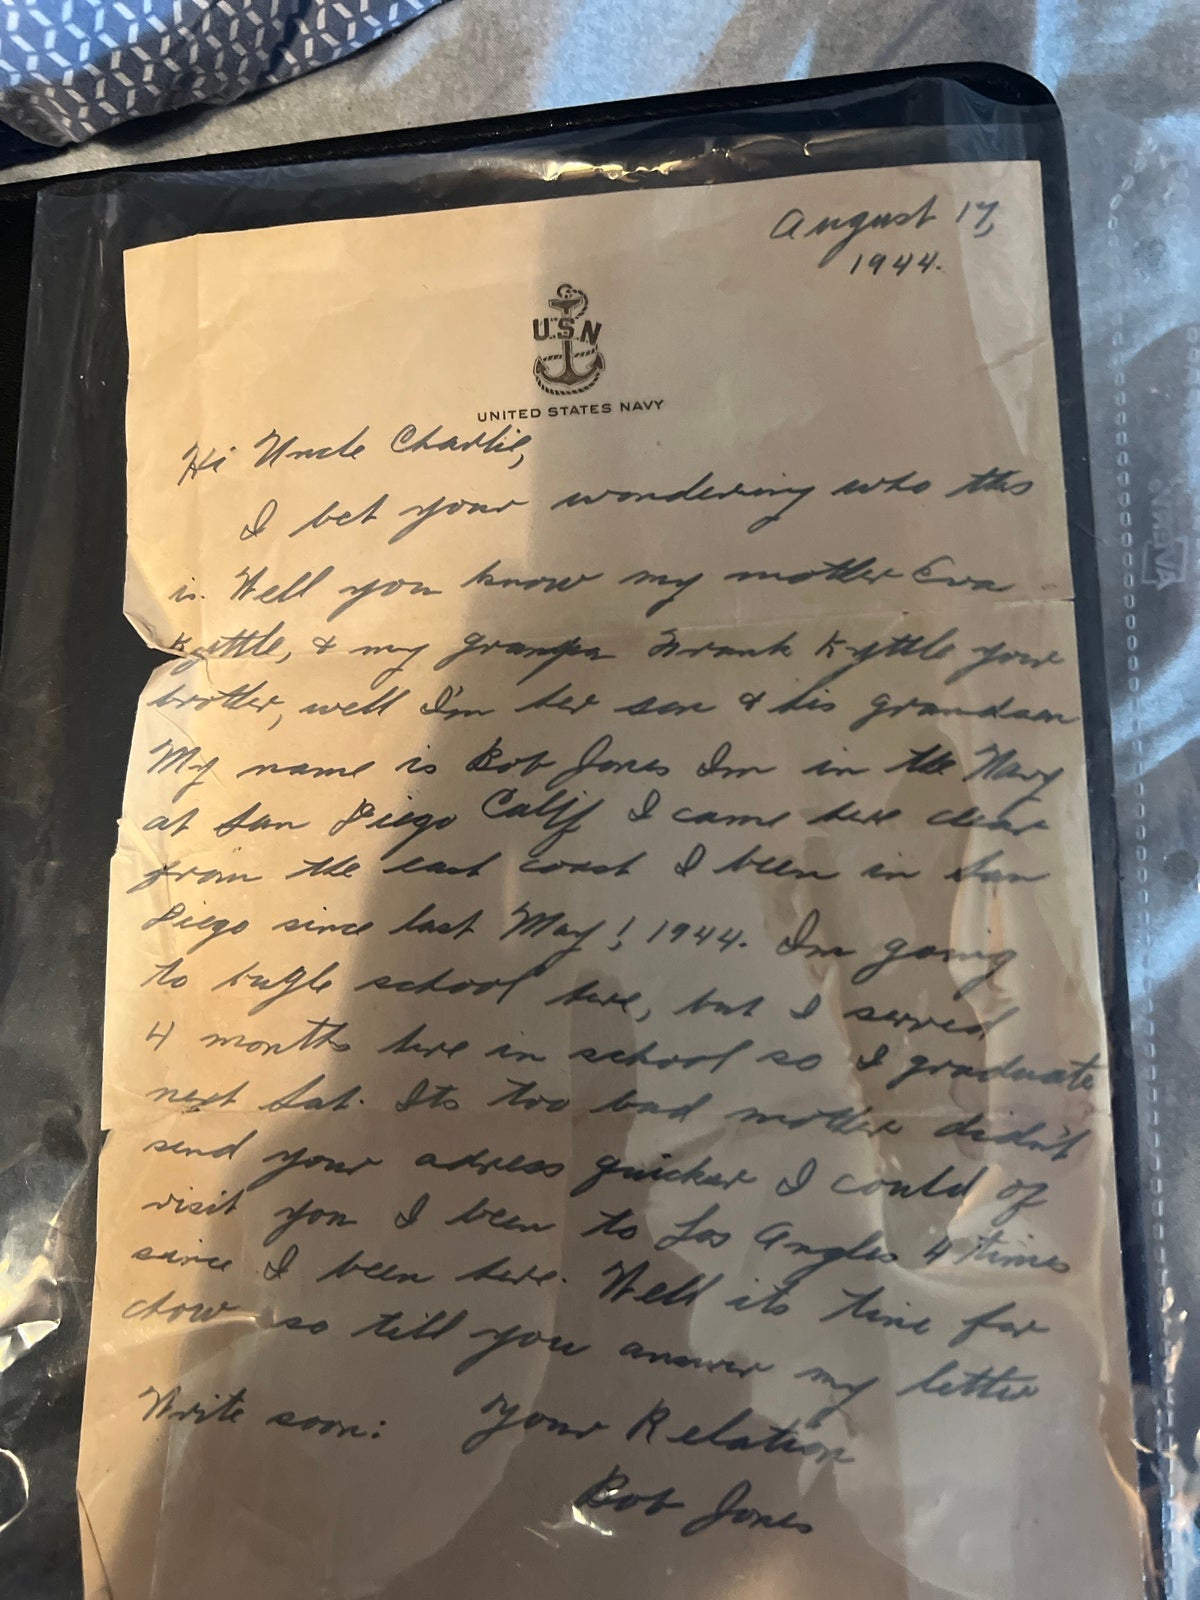 August 17,
1944.
U.S.N
UNITED STATES NAVY
Hi Uncle Charlie,
I bet your wondering who this
is. Well you know my mother Eva
Kyttle, & my granpa Frank Kyttle your
brother, well I'm her son & his grandson
My name is Bob Jones Im in the Navy
at San Diego Calif I came here clear
from the east coast I been in San
Diego since last May! 1944. Im going
to bugle school here, but I served
4 months here in school so I graduate
next Sat. Its too bad mother didn't
send your adress quicker I could of
visit you I been to Los Angles 4 times
since I been here. Well its time for
chow so till you answer my letter
Write soon: Your Relation
Bob Jones